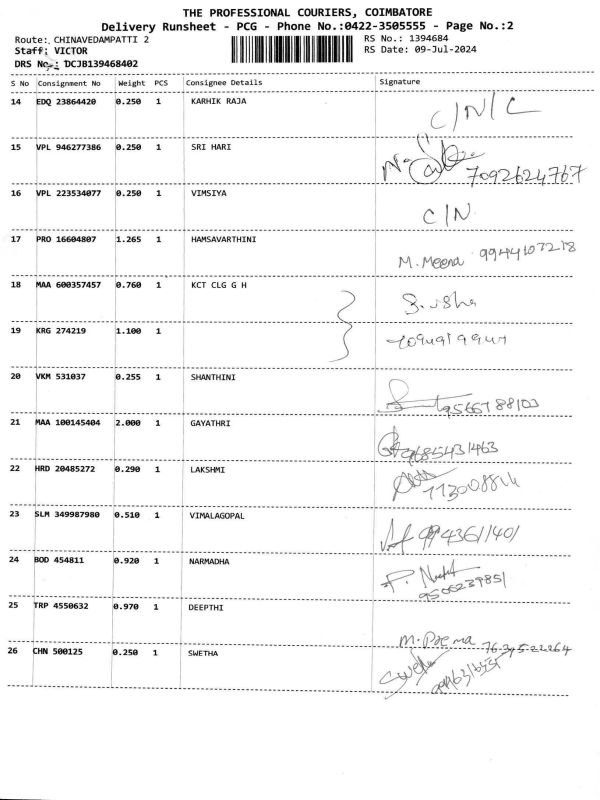 THE PROFESSIONAL COURIERS, COIMBATORE
Delivery Runsheet - PCG - Phone No.:0422-3505555 - Page No.:2
Route: CHINAVEDAMPATTI 2 RS No.: 1394684
Staff: VICTOR RS Date: 09-Jul-2024
DRS No.: DCJB139468402
S No Consignment No Weight PCS Consignee Details Signature
14 EDQ 23864420 0.250 1 KARHIK RAJA C/N/C
15 VPL 946277386 0.250 1 SRI HARI 7092624767
16 VPL 223534077 0.250 1 VIMSIYA C/N
17 PRO 16604807 1.265 1 HAMSAVARTHINI M. Meena 9944107278
18 MAA 600357457 0.760 1 KCT CLG G H
19 KRG 274219 1.100 1
20 VKM 531037 0.255 1 SHANTHINI 9566788103
21 MAA 100145404 2.000 1 GAYATHRI 9685431463
22 HRD 20485272 0.290 1 LAKSHMI
23 SLM 349987980 0.510 1 VIMALAGOPAL 9943611401
24 BOD 454811 0.920 1 NARMADHA
9500239851
25 TRP 4550632 0.970 1 DEEPTHI
26 CHN 500125 0.250 1 SWETHA Swetha